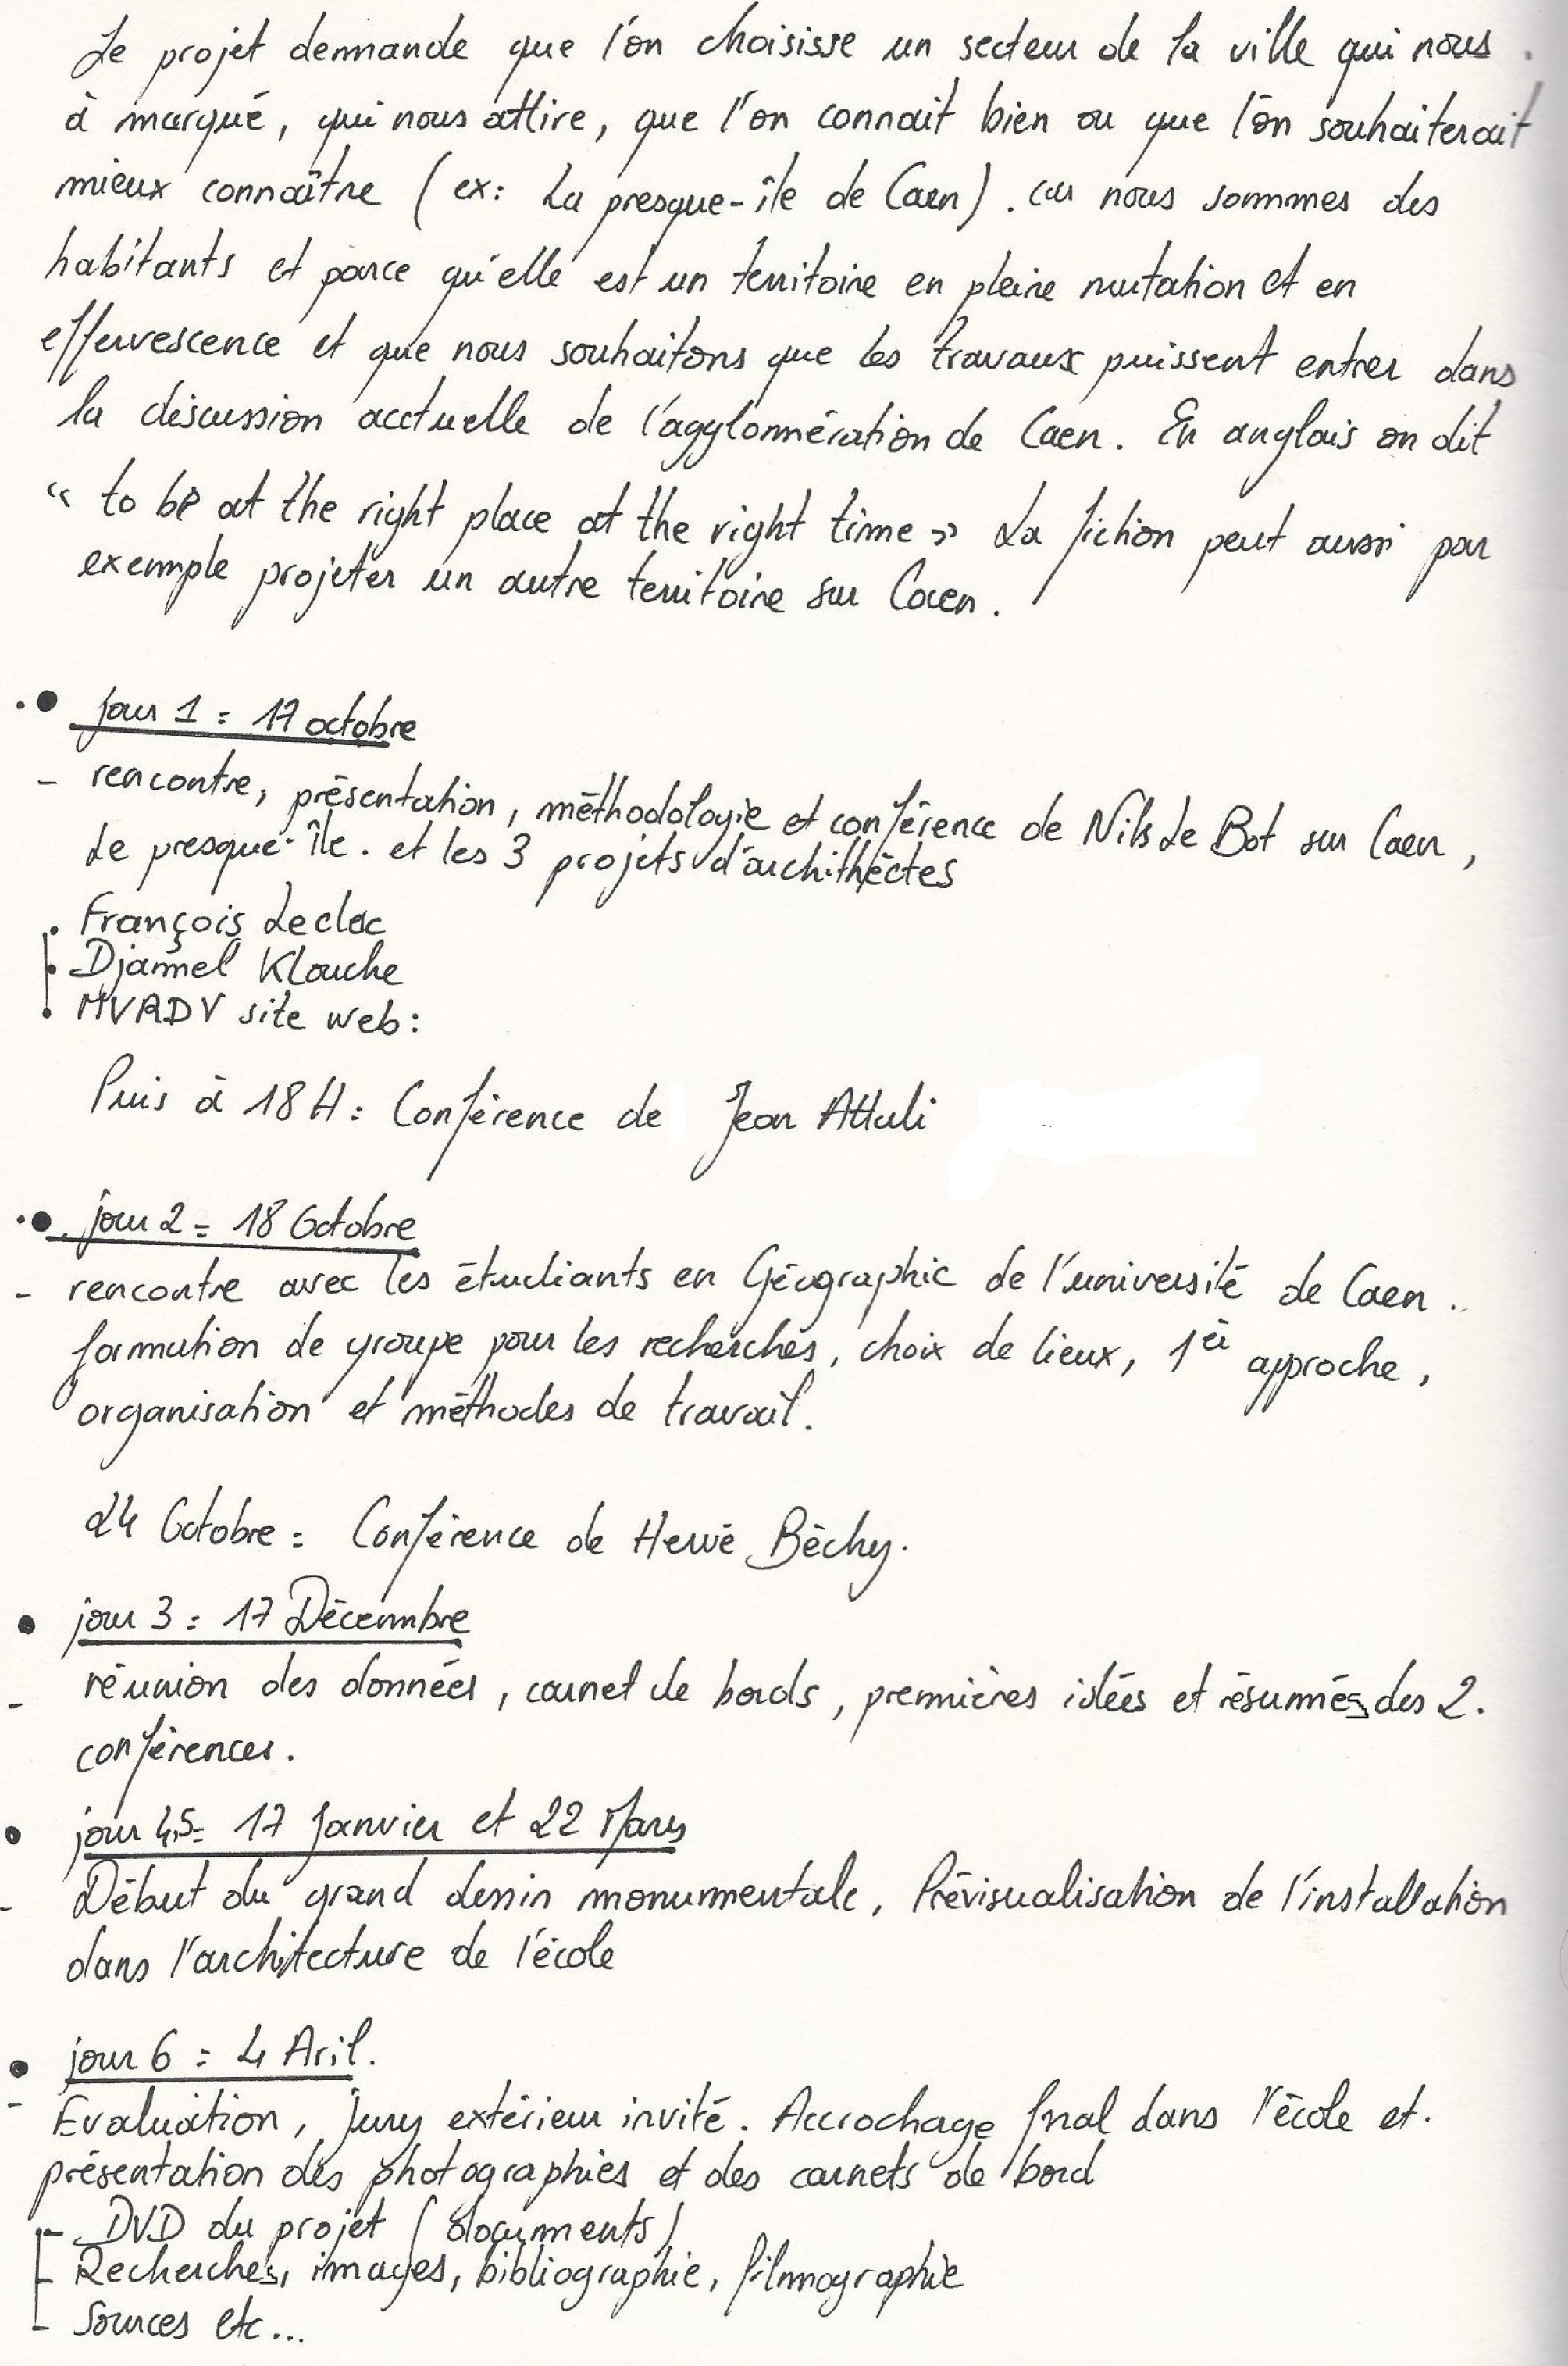 Le projet demande que l'on choisisse un secteur de la ville qui nous
à marqué, qui nous attire, que l'on connait bien ou que l'on souhaiterait
mieux connaître (ex: La presque-île de Caen). car nous sommes des
habitants et parce qu'elle est un territoire en pleine mutation et en
effervescence et que nous souhaitons que les travaux puissent entrer dans
la discussion acctuelle de l'agglomération de Caen. En anglais on dit
"to be at the right place at the right time» La fiction peut aussi par
exemple projeter un autre territoire sur Caen.
• jour 1 = 17 octobre
- rencontre, présentation, méthodologie et conférence de Nils Le Bot sur Caen,
Le presque-île. et les 3 projets d'archithèctes
• François Leclec
• Djamel Klouche
• MVRDV site web:
Puis à 18H: Conférence de Jean Attali
• jour 2 = 18 Octobre
- rencontre avec les étudiants en Géographie de l'université de Caen.
formation de groupe pour les recherches, choix de lieux, 1èr approche,
organisation et méthodes de travail.
24 Octobre = Conférence de Hervé Béchy.
• jour 3 = 17 Décembre
- réunion des données, carnet de bords, premières idées et résumés des 2.
conférences.
• jour 4,5= 17 Janvier et 22 Mars
- Début du grand dessin monumentale, Prévisualisation de l'installation
dans l'architecture de l'école
• jour 6 = 4 Aril.
- Evaluation, Jury extérieur invité. Accrochage final dans l'école et.
présentation des photographies et des carnets de bord
- DVD du projet (documents)
- Recherches, images, bibliographie, filmographie
- Sources etc...